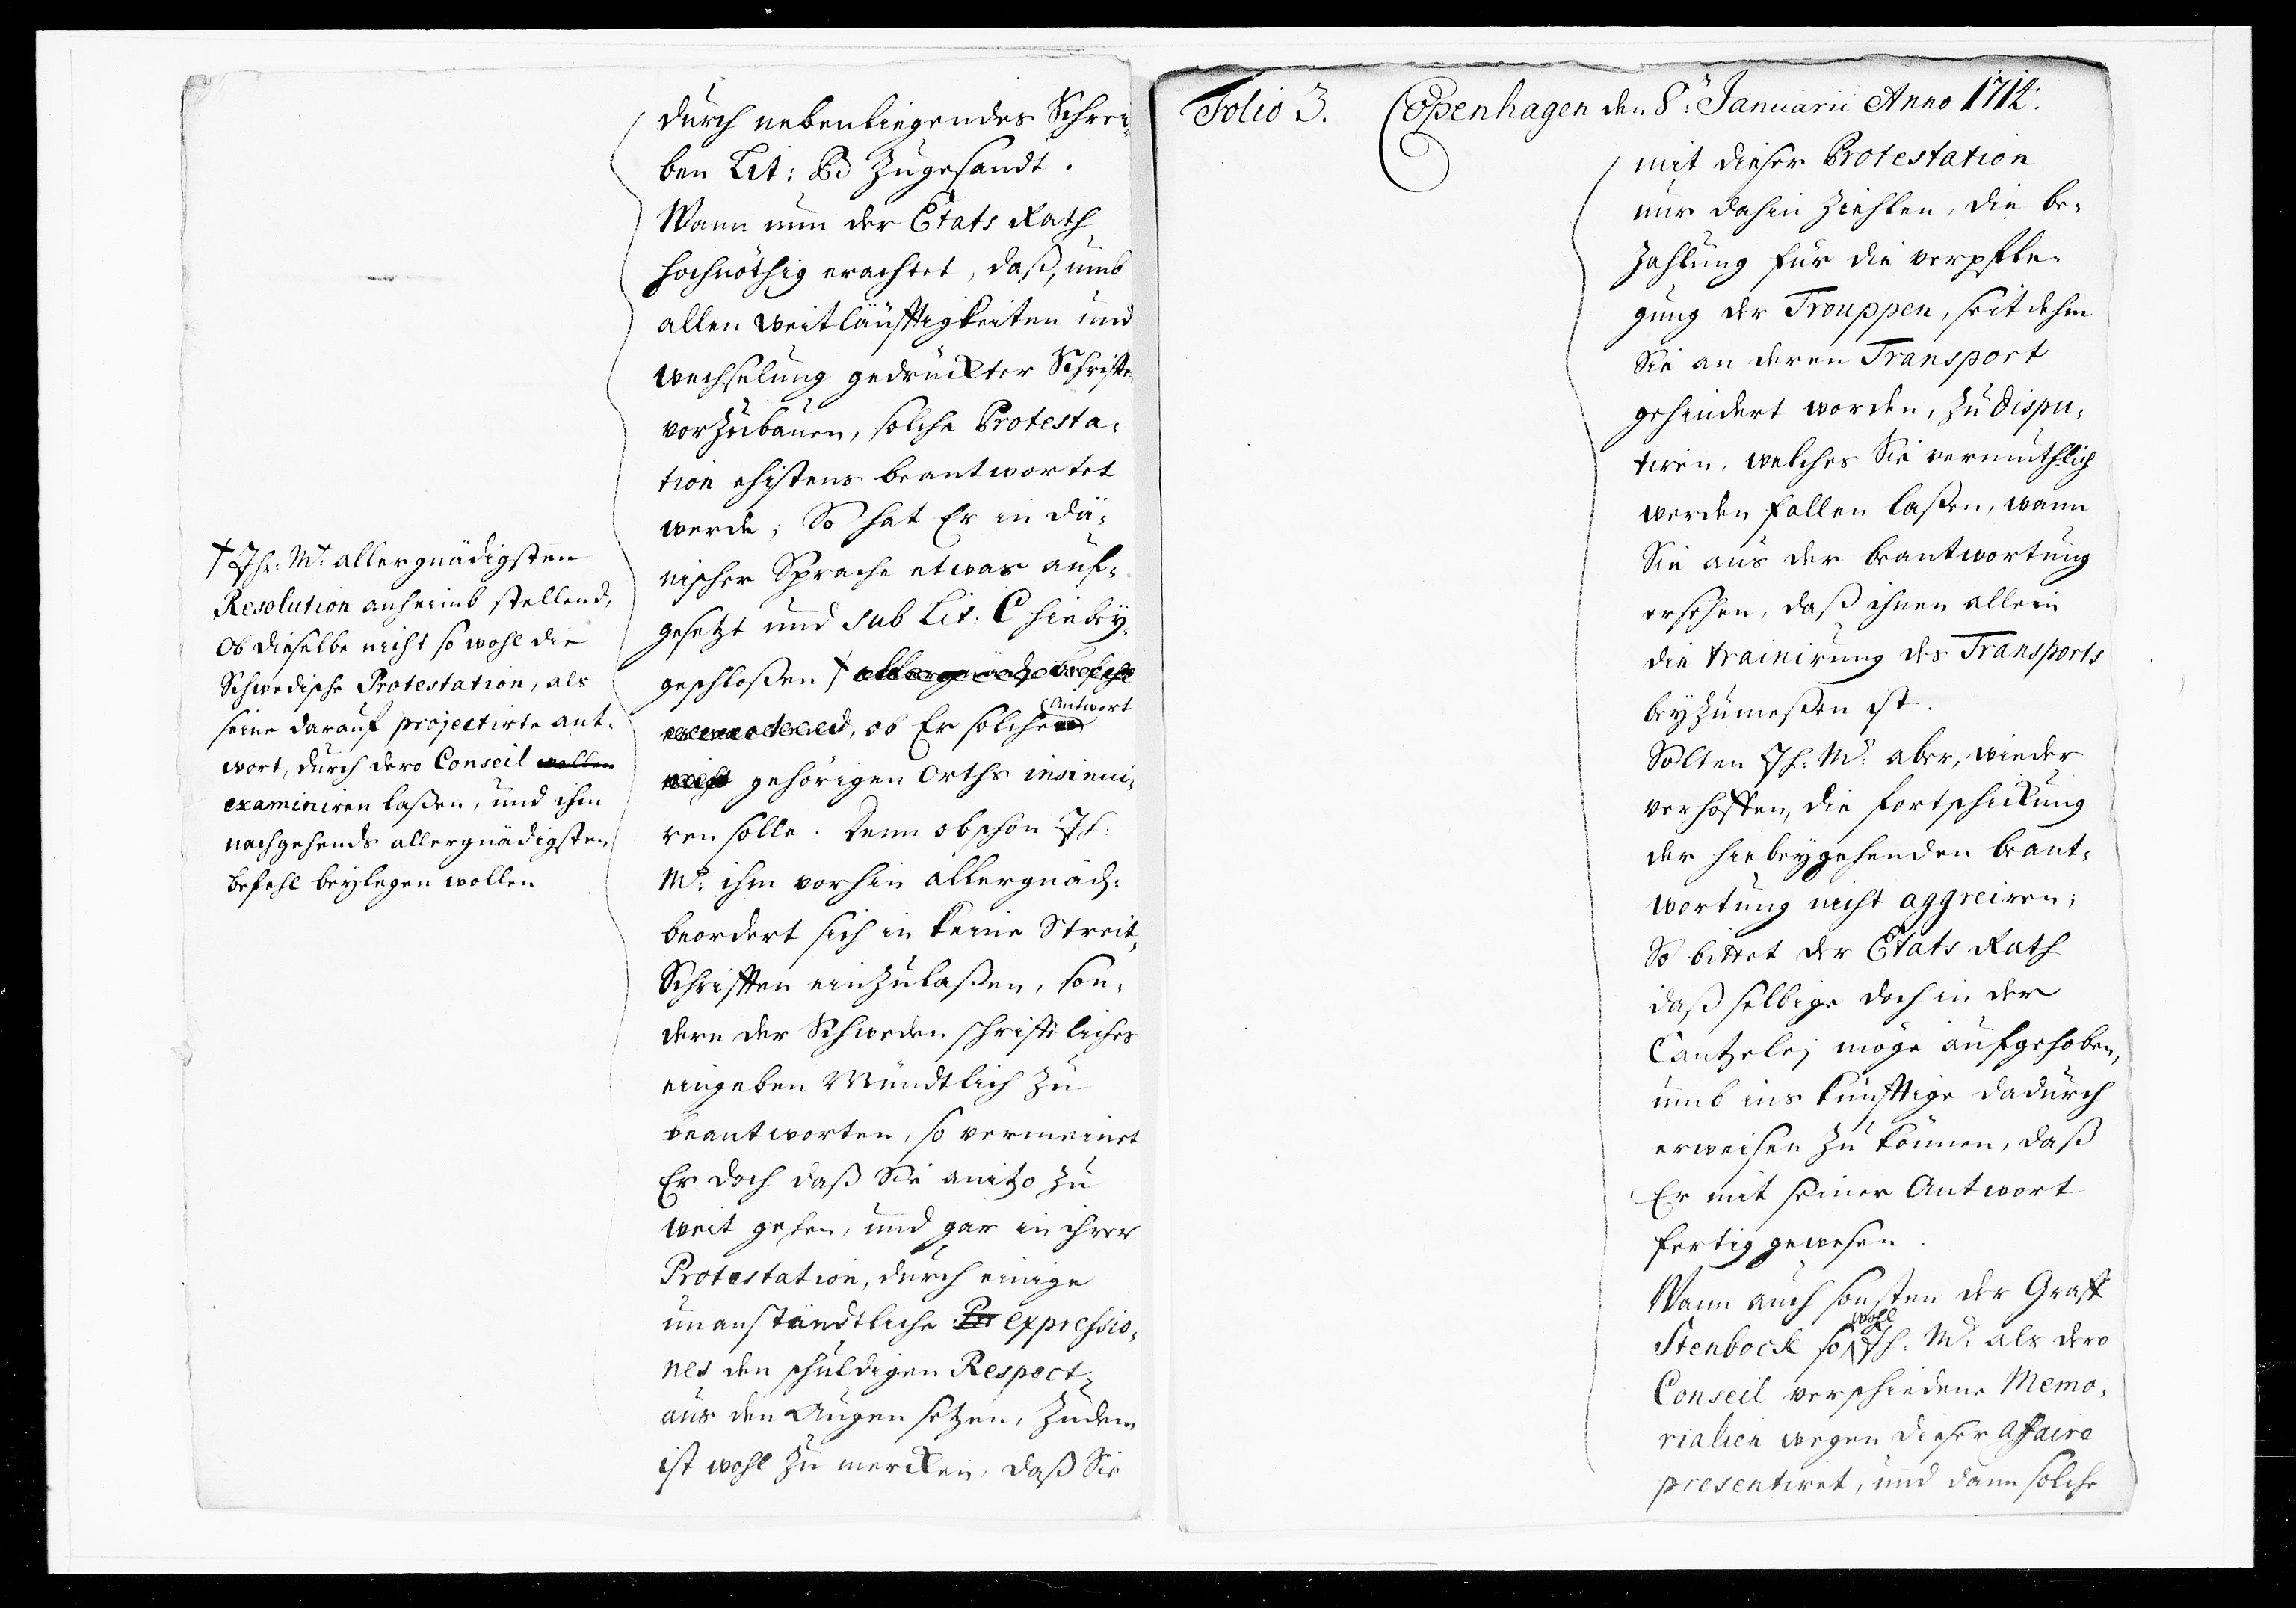 durch nebenliegendes Schrei-
ben Lit: B zugesandt.
Wann nun der Etats Rath
hochnöthig erachtet, daß, umb
allen weitläufftigkeiten und
wechselung gedruckter Schrifte
vorzubauen, solche Protesta-
tion ehistens beantwortet
werde, So hat Er in dä-
nischer Sprache etwas auf-
gesetzt und sub Lit: C hiebey-
geschloßen † allergnäd befehl
erwartend, ob Er solche Antwort
nicht gehörigen Orths insinui-
ren solle. Denn obschon Ih:
Mt: ihm vorhin allergnäd:
beordert sich in keine Streit-
Schrifften einzulaßen, son-
dern der Schweden schrifftliches
eingeben Mündtlich zu
beantworten, so vermeinet
Er doch daß Sie anitzo zu
weit gehen, und gar in ihrer
Protestation, durch einige
unanständtliche Er expressio-
nes den schuldigen Respect
aus den Augen setzen, Zudem
ist wohl zu mercken, daß Sie
† Ihr: Mt: allergnädigsten
Resolution anheimb stellend,
Ob dieselbe nicht so wohl die
Schwedische Protestation, als
seine darauf projectirte ant-
wort, durch dero Conseil wollen
examiniren laßen, und ihm
nachgehends allergnädigsten
befehl beylegen wollen
Folio 3. Copenhagen den 8: Januarii Anno 1714.
mit dieser Protestation
nur dahin Ziehlen, die be-
zahlung für die verpfle-
gung der Trouppen, seit dehm
Sie an deren Transport
gehindert worden, zu dispu-
tiren, welches Sie vermuthlich
werden fallen laßen, wann
Sie aus der beantwortung
ersehen, daß ihnen allein
die trainirung des Transports
beyzumeßen ist.
Solten Ih: Mt: aber, wieder
verhoffen, die fortschickung
der hiebeygehenden beant-
wortung nicht aggreiren;
So bittet der Etats Rath
daß selbige doch in der
Cantzeley möge aufgehoben,
umb ins künfftige dadurch
erweisen zu können, daß
Er mit seiner Antwort
fertig gewesen.
Wann auch sonsten der Graff
Stenbock so wohl Ih: Mt: als dero
Conseil verschiedene Memo-
rialien wegen dieser Affaire
presentiret, und dann solche